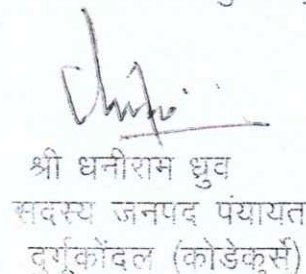 श्री धनीराम ध्रुव
सदस्य जनपद पंचायत
दुर्गूकोंदल (कोडेकुर्से)